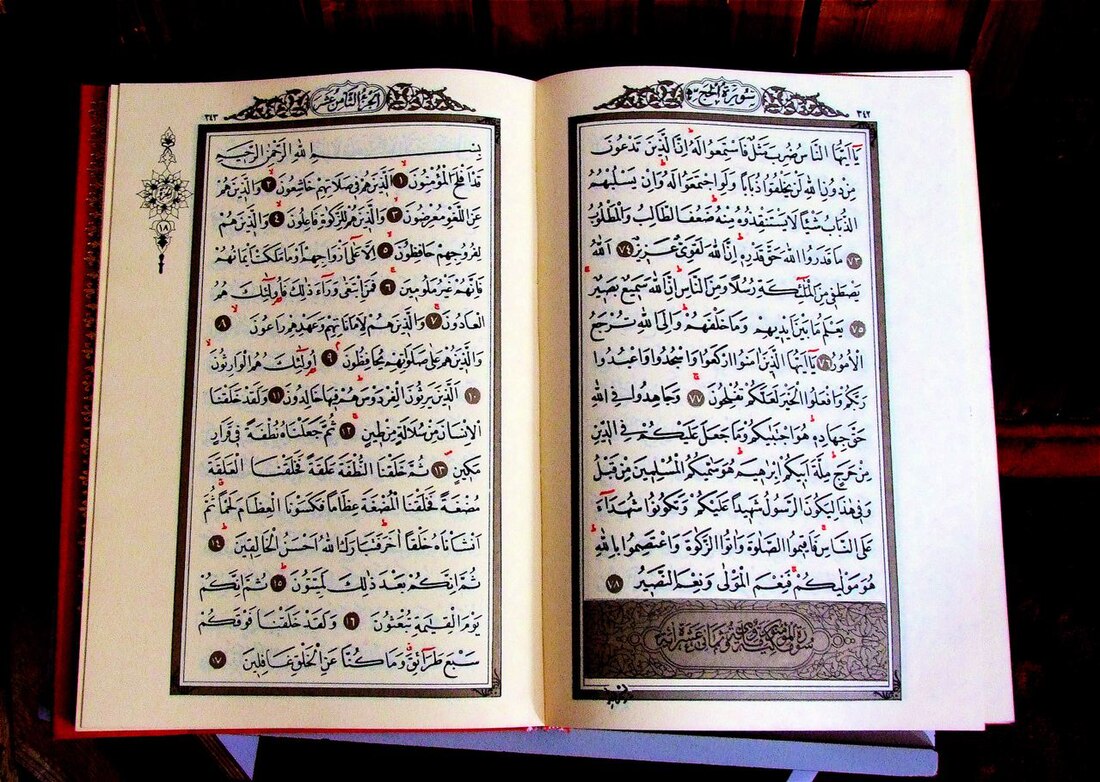 سورة الحج
٣٤٢
يَآ اَيُّهَا النَّاسُ ضُرِبَ مَثَلٌ فَاسْتَمِعُوا لَهُ اِنَّ الَّذِينَ تَدْعُونَ
مِنْ دُونِ اللهِ لَنْ يَخْلُقُوا ذُبَابًا وَلَوِ اجْتَمَعُوا لَهُ وَاِنْ يَسْلُبْهُمُ
الذُّبَابُ شَيْئًا لَا يَسْتَنْقِذُوهُ مِنْهُ ضَعُفَ الطَّالِبُ وَالْمَطْلُوبُ
٧٣ مَا قَدَرُوا اللهَ حَقَّ قَدْرِهِ اِنَّ اللهَ لَقَوِىٌّ عَزِيزٌ ٧٤ اَللهُ
يَصْطَفِى مِنَ الْمَلٰٓئِكَةِ رُسُلًا وَمِنَ النَّاسِ اِنَّ اللهَ سَمِيعٌ بَصِيرٌ
٧٥ يَعْلَمُ مَا بَيْنَ اَيْدِيهِمْ وَمَا خَلْفَهُمْ وَاِلَى اللهِ تُرْجَعُ
الْاُمُورُ ٧٦ يَآ اَيُّهَا الَّذِينَ اٰمَنُوا ارْكَعُوا وَاسْجُدُوا وَاعْبُدُوا
رَبَّكُمْ وَافْعَلُوا الْخَيْرَ لَعَلَّكُمْ تُفْلِحُونَ ٧٧ وَجَاهِدُوا فِى اللهِ
حَقَّ جِهَادِهِ هُوَ اجْتَبٰيكُمْ وَمَا جَعَلَ عَلَيْكُمْ فِى الدِّينِ
مِنْ حَرَجٍ مِلَّةَ اَبِيكُمْ اِبْرٰهِيمَ هُوَ سَمّٰيكُمُ الْمُسْلِمِينَ مِنْ قَبْلُ
وَفِى هٰذَا لِيَكُونَ الرَّسُولُ شَهِيدًا عَلَيْكُمْ وَتَكُونُوا شُهَدَآءَ
عَلَى النَّاسِ فَاَقِيمُوا الصَّلٰوةَ وَاٰتُوا الزَّكٰوةَ وَاعْتَصِمُوا بِاللهِ
هُوَ مَوْلٰيكُمْ فَنِعْمَ الْمَوْلٰى وَنِعْمَ النَّصِيرُ ٧٨
الجزء الثامن عشر
٣٤٣
بِسْمِ اللهِ الرَّحْمٰنِ الرَّحِيمِ
قَدْ اَفْلَحَ الْمُؤْمِنُونَ ١ اَلَّذِينَ هُمْ فِى صَلَاتِهِمْ خَاشِعُونَ ٢ وَالَّذِينَ هُمْ
عَنِ اللَّغْوِ مُعْرِضُونَ ٣ وَالَّذِينَ هُمْ لِلزَّكٰوةِ فَاعِلُونَ ٤ وَالَّذِينَ هُمْ
لِفُرُوجِهِمْ حَافِظُونَ ٥ اِلَّا عَلٰٓى اَزْوَاجِهِمْ اَوْ مَا مَلَكَتْ اَيْمَانُهُمْ
فَاِنَّهُمْ غَيْرُ مَلُومِينَ ٦ فَمَنِ ابْتَغٰى وَرَآءَ ذٰلِكَ فَاُولٰٓئِكَ هُمُ
الْعَادُونَ ٧ وَالَّذِينَ هُمْ لِاَمَانَاتِهِمْ وَعَهْدِهِمْ رَاعُونَ ٨
وَالَّذِينَ هُمْ عَلٰى صَلَوَاتِهِمْ يُحَافِظُونَ ٩ اُولٰٓئِكَ هُمُ الْوَارِثُونَ
١٠ اَلَّذِينَ يَرِثُونَ الْفِرْدَوْسَ هُمْ فِيهَا خَالِدُونَ ١١ وَلَقَدْ خَلَقْنَا
الْاِنْسَانَ مِنْ سُلَالَةٍ مِنْ طِينٍ ١٢ ثُمَّ جَعَلْنَاهُ نُطْفَةً فِى قَرَارٍ
مَكِينٍ ١٣ ثُمَّ خَلَقْنَا النُّطْفَةَ عَلَقَةً فَخَلَقْنَا الْعَلَقَةَ
مُضْغَةً فَخَلَقْنَا الْمُضْغَةَ عِظَامًا فَكَسَوْنَا الْعِظَامَ لَحْمًا ثُمَّ
اَنْشَأْنَاهُ خَلْقًا اٰخَرَ فَتَبَارَكَ اللهُ اَحْسَنُ الْخَالِقِينَ ١٤
ثُمَّ اِنَّكُمْ بَعْدَ ذٰلِكَ لَمَيِّتُونَ ١٥ ثُمَّ اِنَّكُمْ
يَوْمَ الْقِيٰمَةِ تُبْعَثُونَ ١٦ وَلَقَدْ خَلَقْنَا فَوْقَكُمْ
سَبْعَ طَرَآئِقَ وَمَا كُنَّا عَنِ الْخَلْقِ غَافِلِينَ ١٧
١٨